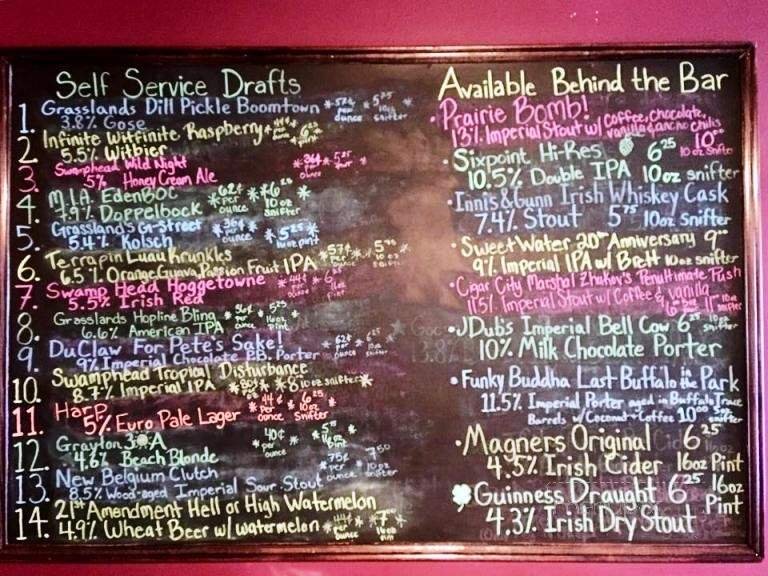 Self Service Drafts
1. Grasslands Dill Pickle Boomtown
3.8% Gose
per ounce
5 25
10oz snifter
2 Infinite Witfinite Raspberry
5.5% Witbier
3 Swamphead Wild Night *36¢* 5 25
5% Honey Cream Ale
4 M.I.A. EdenBOC *62¢* 6 25
7.9% Doppelbock per ounce 10 oz snifter
5. Grasslands G-Street *36¢ per ounce* 5 25
5.4% Kolsch 16oz pint
6. Terrapin Luau Krunkles *57¢
6.5% Orange Guava, Passion Fruit IPA per ounce
7 Swamp Head Hoggetowne *44¢*
5.5% Irish Red
8. Grasslands Hopline Bling *36¢ per ounce* 5 25
6.6% American IPA 16oz Pint
9. DuClaw For Pete's Sake! *62¢
9% Imperial Chocolate P.B. Porter per ounce
10. Swamphead Tropical Disturbance
8.7% Imperial IPA *80¢* 8 10oz snifter*
11. Harp *44¢ Per ounce* 6 25
5% Euro Pale Lager 10oz Snifter
12. Grayton 30A *40¢ per ounce
4.6% Beach Blonde
13. New Belgium Clutch *75¢ per ounce 7 50
8.5% Wood-aged Imperial Sour Stout 10oz snifter
14. 21st Amendment Hell or High Watermelon
4.9% Wheat Beer w/ watermelon *44¢ per ounce* 7
Available Behind the Bar
• Prairie Bomb!
13% Imperial Stout w/ Coffee, Chocolate, vanilla & ancho chilis 10 00
10 oz Snifter
• Sixpoint Hi-Res 6 25
10.5% Double IPA 10oz snifter
• Innis & Gunn Irish Whiskey Cask
7.4% Stout 5 75 10oz Snifter
• SweetWater 20th Anniversary 9 00
9% Imperial IPA w/ Brett 10oz snifter
• Cigar City Marshal Zhukov's Penultimate Push
11.5% Imperial Stout w/ Coffee & vanilla
• JDubs Imperial Bell Cow 6 25
10% Milk Chocolate Porter
• Funky Buddha Last Buffalo in the Park
11.5% Imperial Porter aged in Buffalo Trace
Barrels w/ Coconut + Coffee 10 00
• Magners Original 6 25
4.5% Irish Cider 16oz Pint
Guinness Draught 6 25 16oz Pint
4.3% Irish Dry Stout